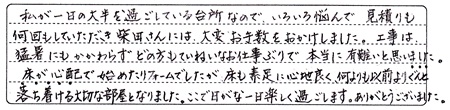 私が一日の大半を過ごしている台所なので、いろいろ悩んで 見積りも
何回もしていただき柴田さんには、大変お手数をおかけしました。工事は
猛暑にもかかわらず どの方もていねいなお仕事ぶりで 本当に有難いと思いました。
床が心配で始めたリフォームでしたが 床も素足に心地良く 何よりも以前よりぐんと
落ち着ける大切な部屋となりました。ここで日がな一日楽しく過ごします。ありがとうございました。